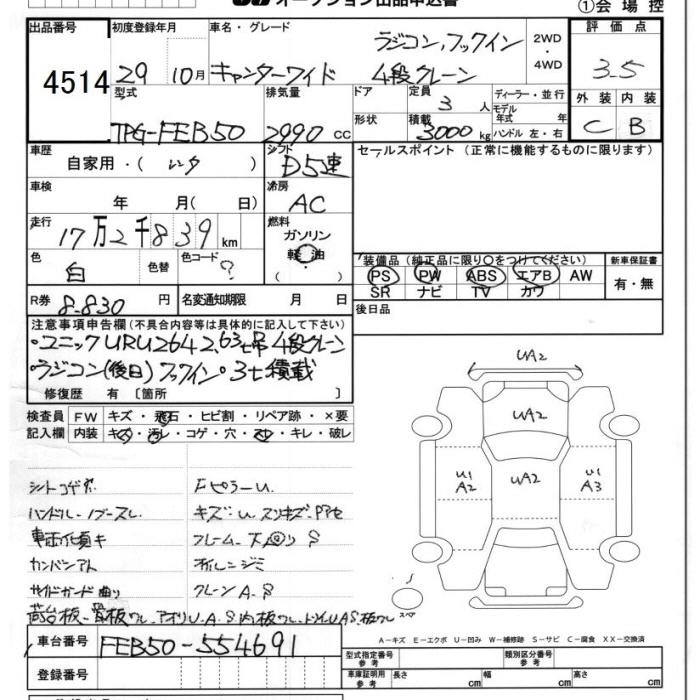 オークション出品申込書
①会場控
出品番号 初度登録年月 車名・グレード 評価点
ラジコン,フックイン 2WD・4WD
4514 29 10月 キャンターワイド 4段クレーン 3.5
型式 排気量 ドア 定員 3人 ディーラー・並行 外装 内装
モデル年式 年
TPG-FEB50 2990 CC 形状 積載 3000 kg ハンドル 左・右 C B
車歴 シフト セールスポイント (正常に機能するものに限ります)
自家用・( レンタ ) D5速
車検 年 月( 日) 冷房 AC
走行 17万2千839 km 燃料 ガソリン
軽油
( )
色 白 色替 色コード ?
装備品 (純正品に限り○をつけてください) 新車保証書
PS PW ABS エアB AW 有・無
SR ナビ TV カワ
R券 8.830 円 名変通知期限 月 日 後日品
注意事項申告欄(不具合内容等は具体的に記入して下さい)
・ユニックURU264 2.63t吊 4段クレーン
・ラジコン(後日)フックイン・3t積載
修復歴 有 〔箇所 〕
検査員 FW キズ・飛石・ヒビ割・リペア跡・×要
記入欄 内装 キズ・汚レ・コゲ・穴・スレ・キレ・破レ
UA2
UA2
U1 A2 UA2 U1 A3
スペア
シートコゲ穴 FピラーU
ハンドル・ノブスレ
キズ・U
フレーム・下回りS
サイドガード曲り クレーンA.S
A－キズ E－エクボ U－凹み W－補修跡 S－サビ C－腐食 XX－交換済
車台番号 FEB50-554691
型式指定番号 参考 類別区分番号 参考
登録番号 車庫証明用 参考 長さ cm 幅 cm 高さ cm